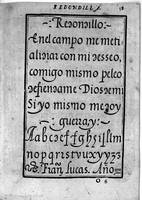 REDONDILLA
Redondillo:
En el campo me meti
a lidiar con mi desseo,
comigo mismo peleo
defiendame Dios de mi
Si yo mismo me doy
guerra,
Aabcdefffghijſllm
nopqrisſtvuxyyzz
Frañ. Lucas. Año